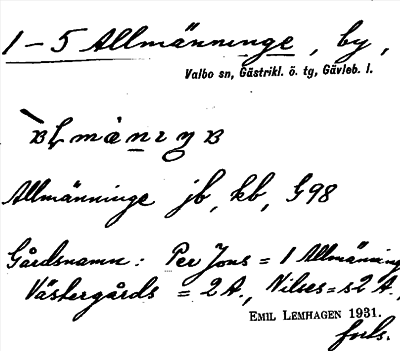 1–5 Allmänninge, by,
Valbo sn, Gästrikl. ö. tg, Gävleb. l.
Allmänninge jb, kb, G98
Gårdsnamn: Per Jons = 1 Allmänning
Västergårds = 2 A., Nilses = s2 A.,
EMIL LEMHAGEN 1931.
forts.